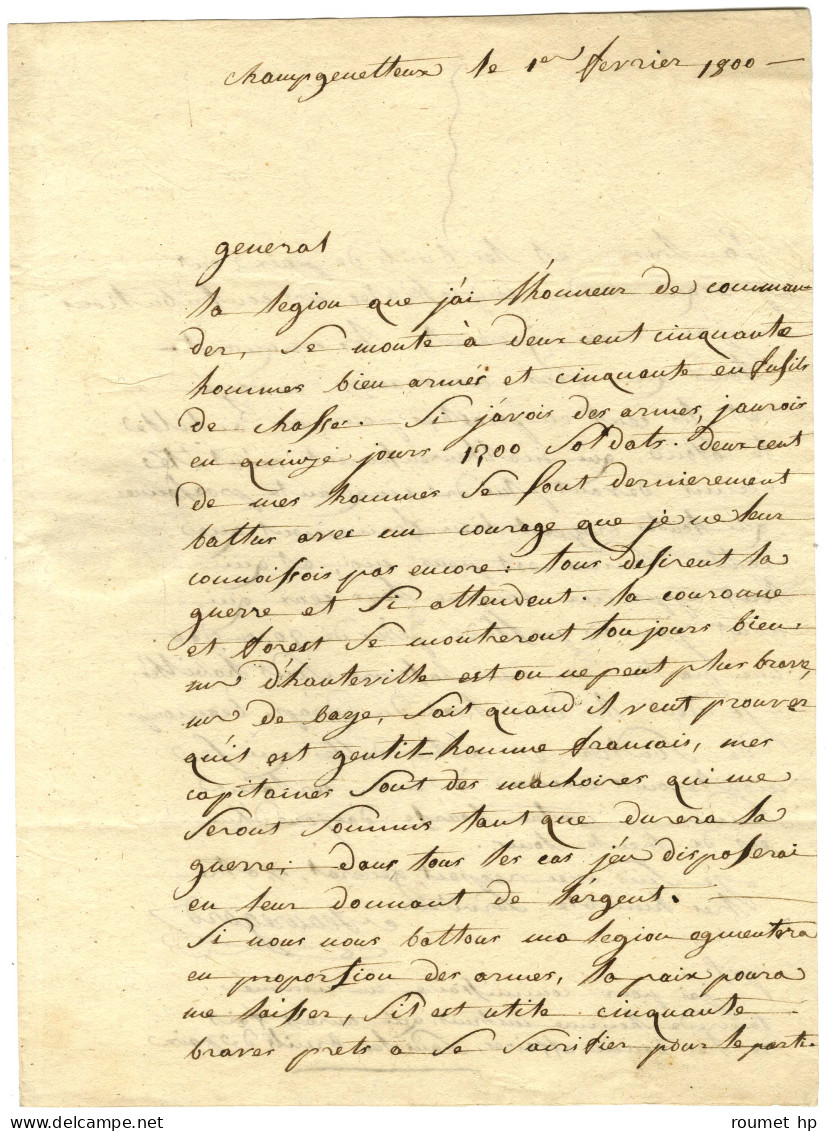 champgenetteux le 1er fevrier 1800 —
general
la legion que j'ai l'honneur de comman-
der, se monte à deux cent cinquante
hommes bien armés et cinquante en fusils
de chasse. Si j'avois des armes, jaurois
en quinze jours 1200 soldats. deux cent
de mes hommes se sont dernierement
battus avec un courage que je ne leur
connoissois pas encore: tous desirent la
guerre et si attendent. la couronne
et forest se montreront toujours bien.
mr d'hauteville est on ne peut plus brave,
mr de baye, sait quand il veut prouver
qu'il est gentil-homme francais, mes
capitaines sont des machoires qui me
seront soumis tant que durera la
guerre; dans tous les cas j'en disposerai
en leur donnant de l'argent.
Si nous nous battons ma legion ogmentera
en proportion des armes, la paix poura
me laisser, s'il est utile cinquante
braves prets a se sacrifier pour le parti.
roumet hp